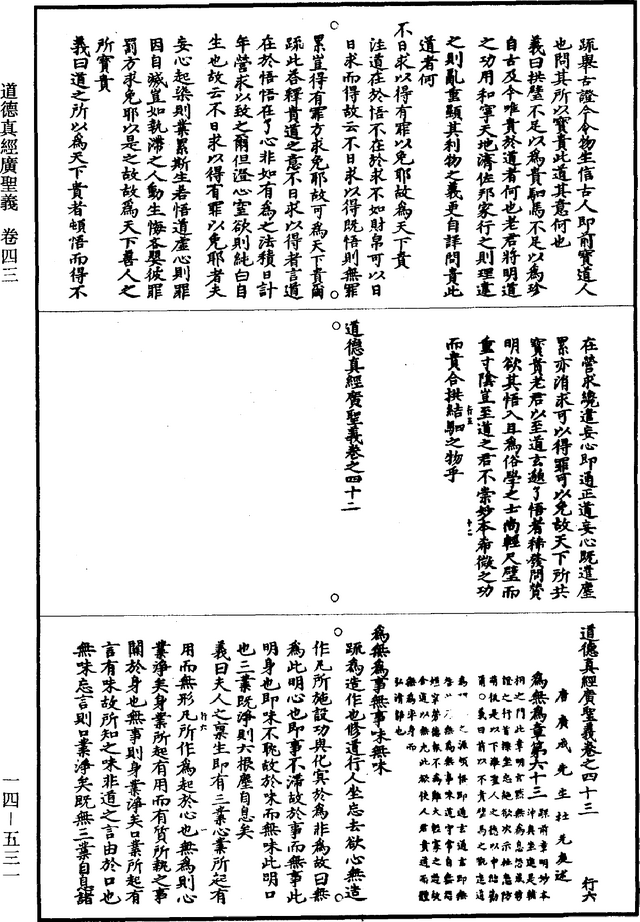 道德真經廣聖義 卷四三
一四—五三一
疏舉古證今令物生信古人即前寶道人
也問其所以寶貴此道其意何也
義曰拱璧不足以為貴駟馬不足以為珍
自古及今唯貴於道者何也老君將明道
之功用和寧天地濟佐邦家行之則理違
之則亂重顯其利物之義更自詳問貴此
道者何
不日求以得有罪以免耶故為天下貴
注道在於悟不在於求不如財帛可以日
日求而得故云不日求以得既悟則無罪
累豈得有罪方求免耶故可為天下貴爾
疏此答釋貴道之意不日求以得者言道
在於悟悟在了心非如有為之法積日計
年營求以致之爾但澄心窒欲則純白自
生也故云不日求以得有罪以免耶者夫
妄心起染則業累斯生若悟道虛心則罪
因自滅豈如執滯之人動生悔吝嬰彼罪
罰方求免耶以是之故故為天下善人之
所寶貴
義曰道之所以為天下貴者頓悟而得不
在營求纔遣妄心即通正道妄心既遣塵
累亦消求可以得罪可以免故天下所共
寶貴老君以至道玄邈了悟者稀發問贊
明欲其悟入且為俗學之士尚輕尺璧而
重寸陰豈至道之君不崇妙本希微之功
而貴合拱結駟之物乎
道德真經廣聖義卷之四十二
道德真經廣聖義卷之四十三
行六
唐廣成先生杜光庭述
為無為章第六十三
為無為事無事味無味
疏為造作也修道行人坐忘去欲心無造
作凡所施設功與化冥於為非為故曰無
為此明心也即事不滯故於事而無事此
明身也即味不耽故於味而無味此明口
也三業既淨則六根塵自息矣
義曰夫人之稟生即有三業心業所起有
用而無形凡所作為起於心也無為則心
業淨矣身業所起有用而有質所執之事
關於身也無事則身業淨矣口業所起有
言有味故所知之味非道之言由於口也
無味忘言則口業淨矣既無三業自息諸